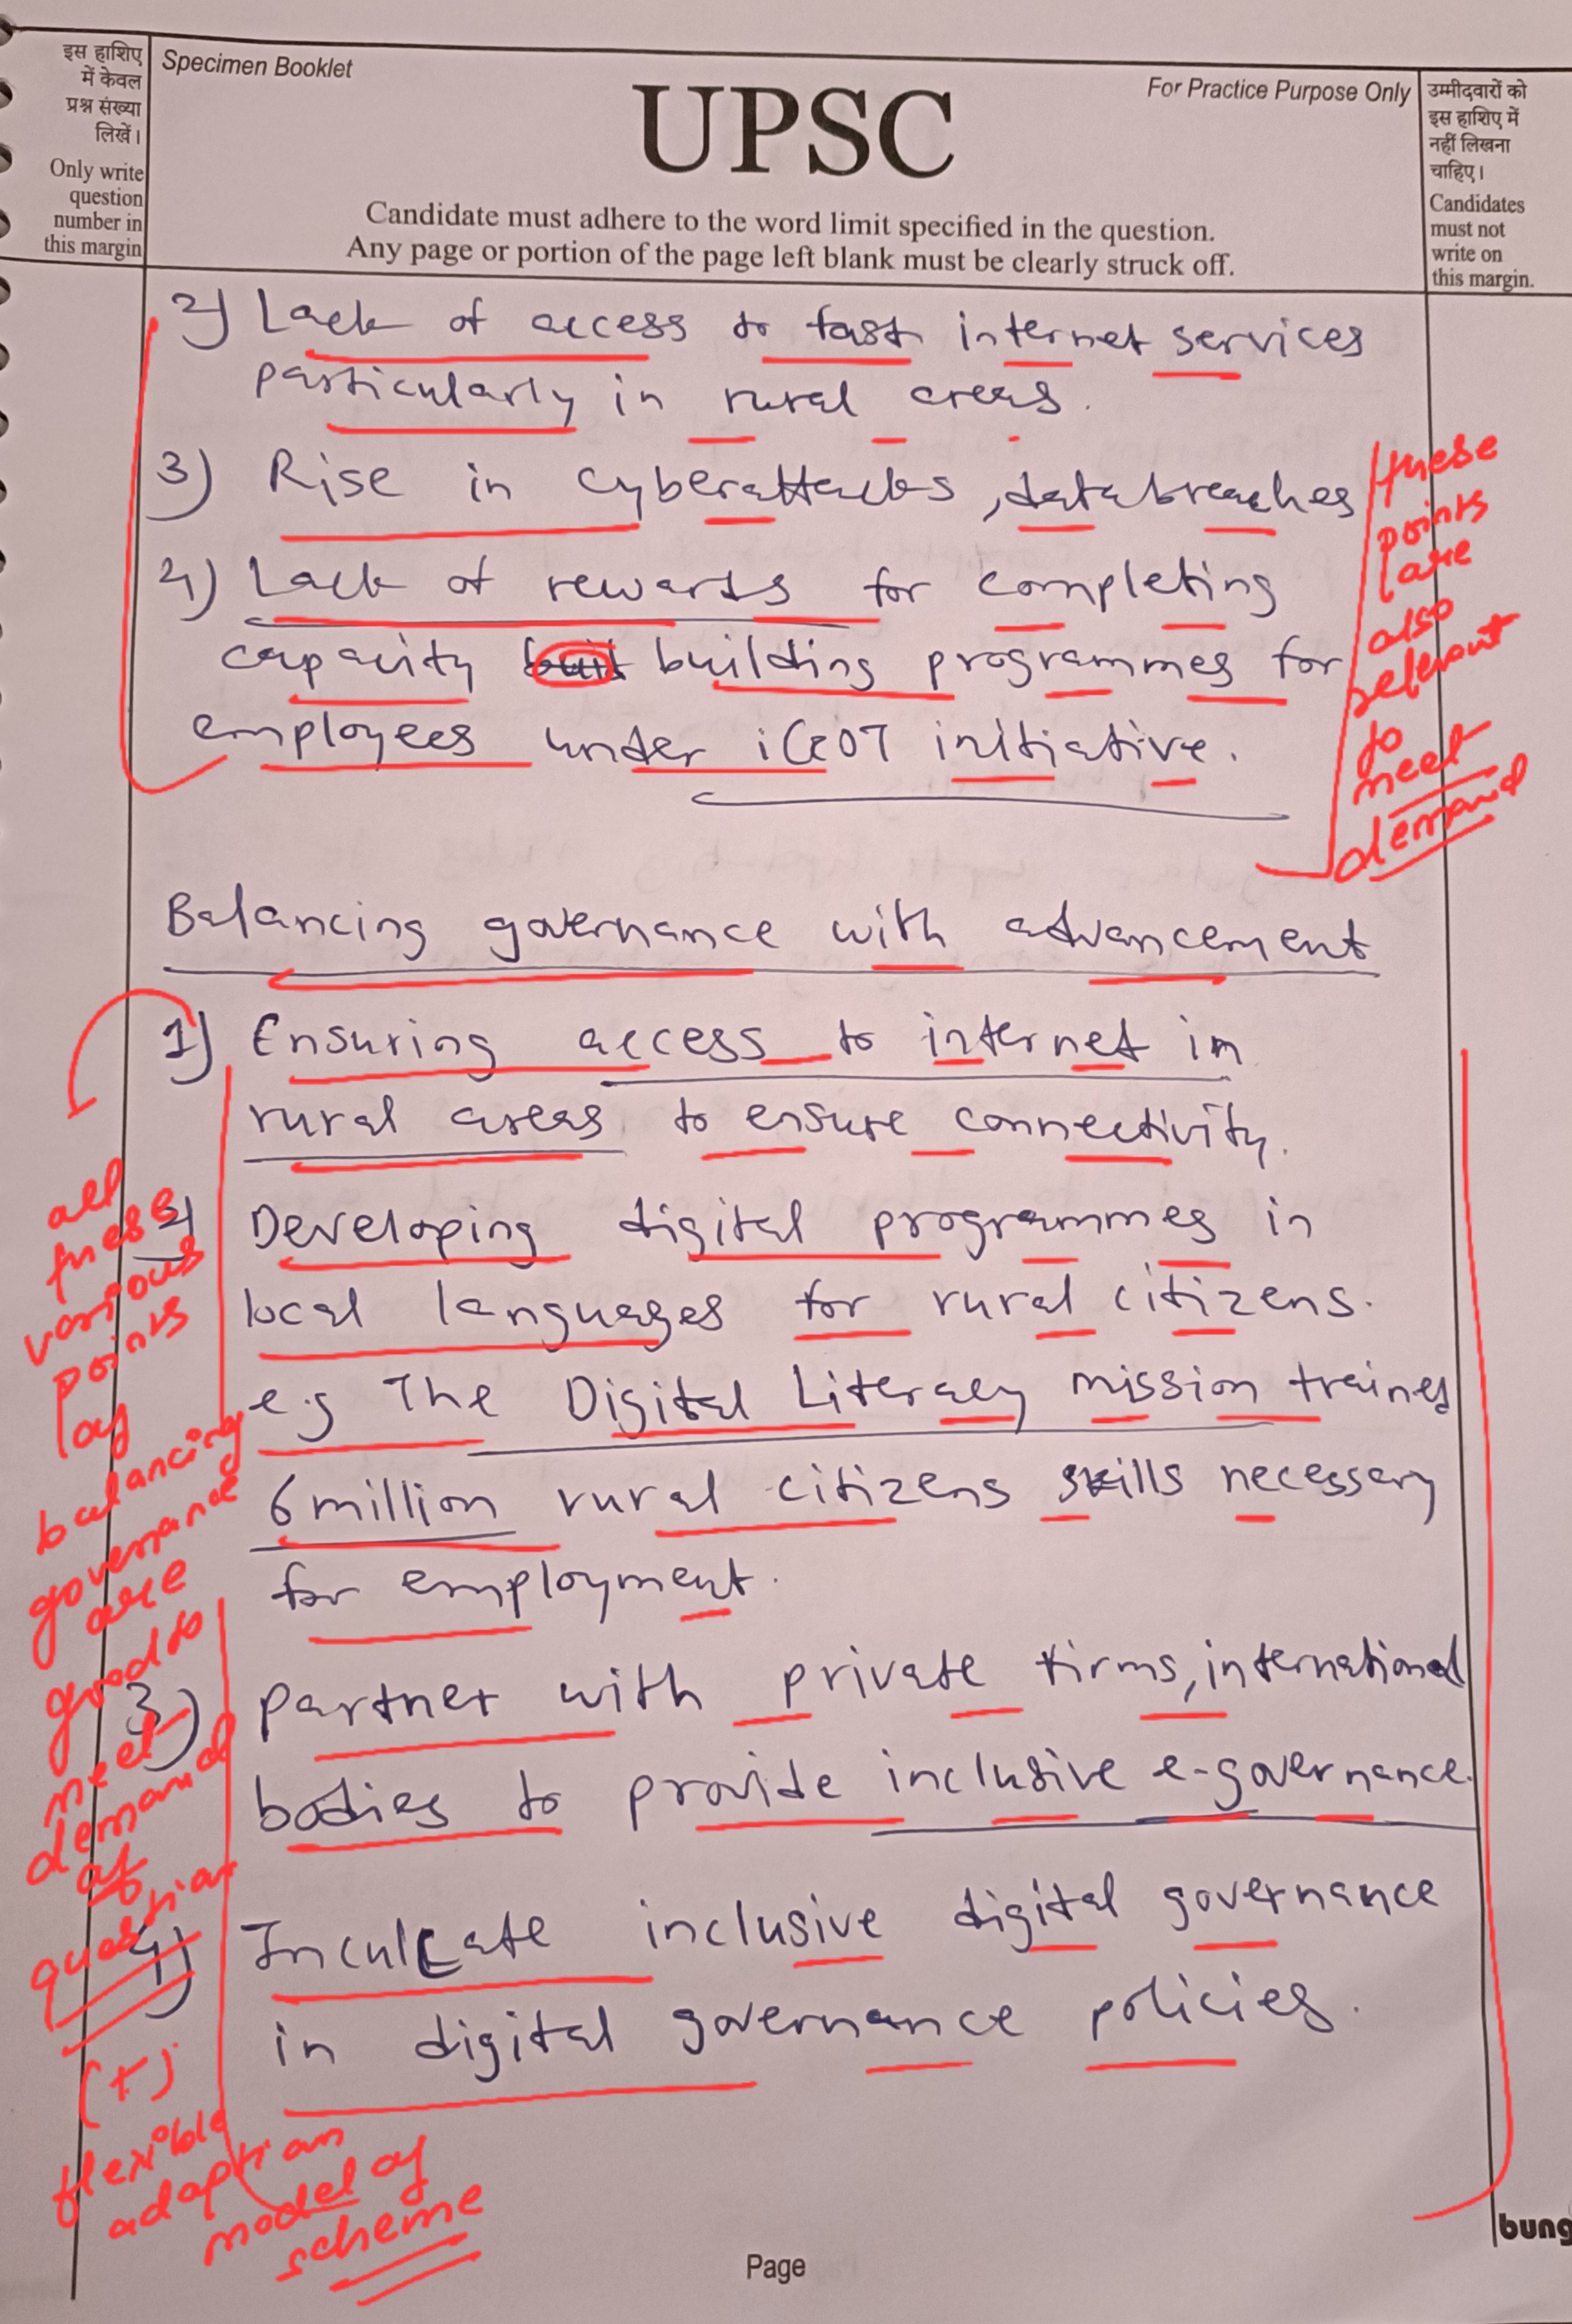 इस हाशिए
में केवल
प्रश्न संख्या
लिखें।
Only write
question
number in
this margin
Specimen Booklet
UPSC
For Practice Purpose Only
Candidate must adhere to the word limit specified in the question.
Any page or portion of the page left blank must be clearly struck off.
उम्मीदवारों को
इस हाशिए में
नहीं लिखना
चाहिए।
Candidates
must not
write on
this margin.
2) Lack of access to fast internet services
particularly in rural areas.
3) Rise in cyberattacks, data breaches
4) Lack of rewards for completing
capacity building programmes for
employees under iGOT initiative.
these
points
are
also
relevant
to
meet
demand
Balancing governance with advancement
1) Ensuring access to internet in
rural areas to ensure connectivity.
2) Developing digital programmes in
local languages for rural citizens.
e.g The Digital Literacy mission trained
6 million rural citizens skills necessary
for employment.
3) Partner with private firms, international
bodies to provide inclusive e-governance.
4) Inculcate inclusive digital governance
in digital governance policies.
all
these
various
points
of
balancing
governance
are
good to
meet
demand
of
question
(+)
flexible
adaption
model of
scheme
Page
bung